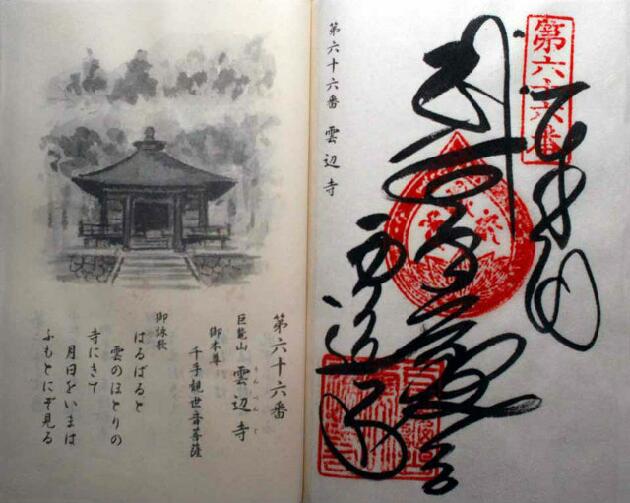 第六十六番
奉納
雲辺寺
第六十六番 雲辺寺
第六十六番
巨鼇山 雲辺寺
うんぺんじ
御本尊
千手観世音菩薩
御詠歌
はるばると
雲のほとりの
寺にきて
月日をいまは
ふもとにぞ見る